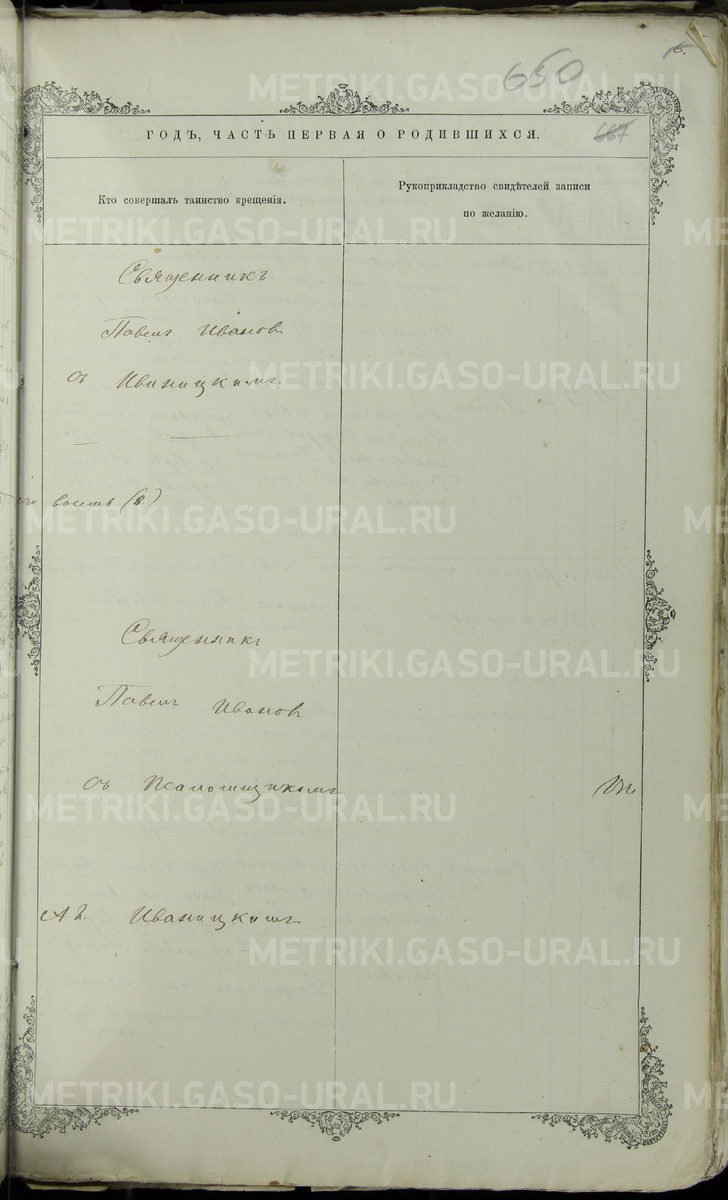 650
6.
ГОДЪ, ЧАСТЬ ПЕРВАЯ О РОДИВШИХСЯ.
667
Кто совершалъ таинство крещенія.
Рукоприкладство свидѣтелей записи
по желанію.
Священникъ
Павелъ Ивановъ
съ Иваницкимъ.
восемь (8.)
Священникъ
Павелъ Ивановъ
съ Псаломщикомъ
Иваницкимъ.
METRIKI.GASO-URAL.RU